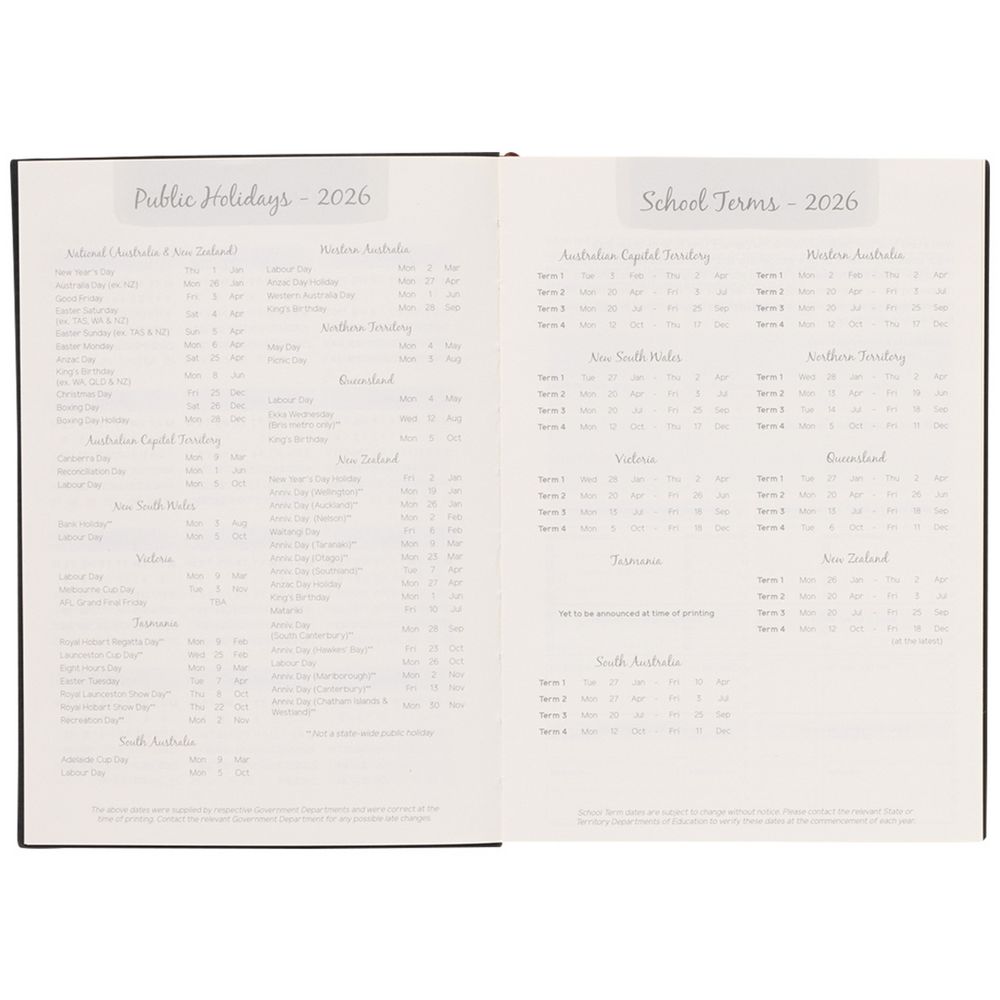 Public Holidays - 2026
National (Australia & New Zealand)
New Year's Day Thu 1 Jan
Australia Day (ex. NZ) Mon 26 Jan
Good Friday Fri 3 Apr
Easter Saturday
(ex. TAS, WA & NZ) Sat 4 Apr
Easter Sunday (ex. TAS & NZ) Sun 5 Apr
Easter Monday Mon 6 Apr
Anzac Day Sat 25 Apr
King's Birthday
(ex. WA, QLD & NZ) Mon 8 Jun
Christmas Day Fri 25 Dec
Boxing Day Sat 26 Dec
Boxing Day Holiday Mon 28 Dec
Australian Capital Territory
Canberra Day Mon 9 Mar
Reconciliation Day Mon 1 Jun
Labour Day Mon 5 Oct
New South Wales
Bank Holiday** Mon 3 Aug
Labour Day Mon 5 Oct
Victoria
Labour Day Mon 9 Mar
Melbourne Cup Day Tue 3 Nov
AFL Grand Final Friday TBA
Tasmania
Royal Hobart Regatta Day** Mon 9 Feb
Launceston Cup Day** Wed 25 Feb
Eight Hours Day Mon 9 Mar
Easter Tuesday Tue 7 Apr
Royal Launceston Show Day** Thu 8 Oct
Royal Hobart Show Day** Thu 22 Oct
Recreation Day** Mon 2 Nov
South Australia
Adelaide Cup Day Mon 9 Mar
Labour Day Mon 5 Oct
Western Australia
Labour Day Mon 2 Mar
Anzac Day Holiday Mon 27 Apr
Western Australia Day Mon 1 Jun
King's Birthday Mon 28 Sep
Northern Territory
May Day Mon 4 May
Picnic Day Mon 3 Aug
Queensland
Labour Day Mon 4 May
Ekka Wednesday
(Bris metro only)** Wed 12 Aug
King's Birthday Mon 5 Oct
New Zealand
New Year's Day Holiday Fri 2 Jan
Anniv. Day (Wellington)** Mon 19 Jan
Anniv. Day (Auckland)** Mon 26 Jan
Anniv. Day (Nelson)** Mon 2 Feb
Waitangi Day Fri 6 Feb
Anniv. Day (Taranaki)** Mon 9 Mar
Anniv. Day (Otago)** Mon 23 Mar
Anniv. Day (Southland)** Tue 7 Apr
Anzac Day Holiday Mon 27 Apr
King's Birthday Mon 1 Jun
Matariki Fri 10 Jul
Anniv. Day
(South Canterbury)** Mon 28 Sep
Anniv. Day (Hawkes' Bay)** Fri 23 Oct
Labour Day Mon 26 Oct
Anniv. Day (Marlborough)** Mon 2 Nov
Anniv. Day (Canterbury)** Fri 13 Nov
Anniv. Day (Chatham Islands &
Westland)** Mon 30 Nov
**Not a state-wide public holiday
The above dates were supplied by respective Government Departments and were correct at the
time of printing. Contact the relevant Government Department for any possible late changes.
School Terms - 2026
Australian Capital Territory
Term 1 Tue 3 Feb - Thu 2 Apr
Term 2 Mon 20 Apr - Fri 3 Jul
Term 3 Mon 20 Jul - Fri 25 Sep
Term 4 Mon 12 Oct - Thu 17 Dec
New South Wales
Term 1 Tue 27 Jan - Thu 2 Apr
Term 2 Mon 20 Apr - Fri 3 Jul
Term 3 Mon 20 Jul - Fri 25 Sep
Term 4 Mon 12 Oct - Thu 17 Dec
Victoria
Term 1 Wed 28 Jan - Thu 2 Apr
Term 2 Mon 20 Apr - Fri 26 Jun
Term 3 Mon 13 Jul - Fri 18 Sep
Term 4 Mon 5 Oct - Fri 18 Dec
Tasmania
Yet to be announced at time of printing
South Australia
Term 1 Tue 27 Jan - Fri 10 Apr
Term 2 Mon 27 Apr - Fri 3 Jul
Term 3 Mon 20 Jul - Fri 25 Sep
Term 4 Mon 12 Oct - Fri 11 Dec
Western Australia
Term 1 Mon 2 Feb - Thu 2 Apr
Term 2 Mon 20 Apr - Fri 3 Jul
Term 3 Mon 20 Jul - Fri 25 Sep
Term 4 Mon 12 Oct - Thu 17 Dec
Northern Territory
Term 1 Wed 28 Jan - Thu 2 Apr
Term 2 Mon 13 Apr - Fri 19 Jun
Term 3 Tue 14 Jul - Fri 18 Sep
Term 4 Mon 5 Oct - Fri 11 Dec
Queensland
Term 1 Tue 27 Jan - Thu 2 Apr
Term 2 Mon 20 Apr - Fri 26 Jun
Term 3 Mon 13 Jul - Fri 18 Sep
Term 4 Tue 6 Oct - Fri 11 Dec
New Zealand
Term 1 Mon 26 Jan - Thu 2 Apr
Term 2 Mon 20 Apr - Fri 3 Jul
Term 3 Mon 20 Jul - Fri 25 Sep
Term 4 Mon 12 Oct - Fri 18 Dec
(at the latest)
School Term dates are subject to change without notice. Please contact the relevant State or
Territory Departments of Education to verify these dates at the commencement of each year.